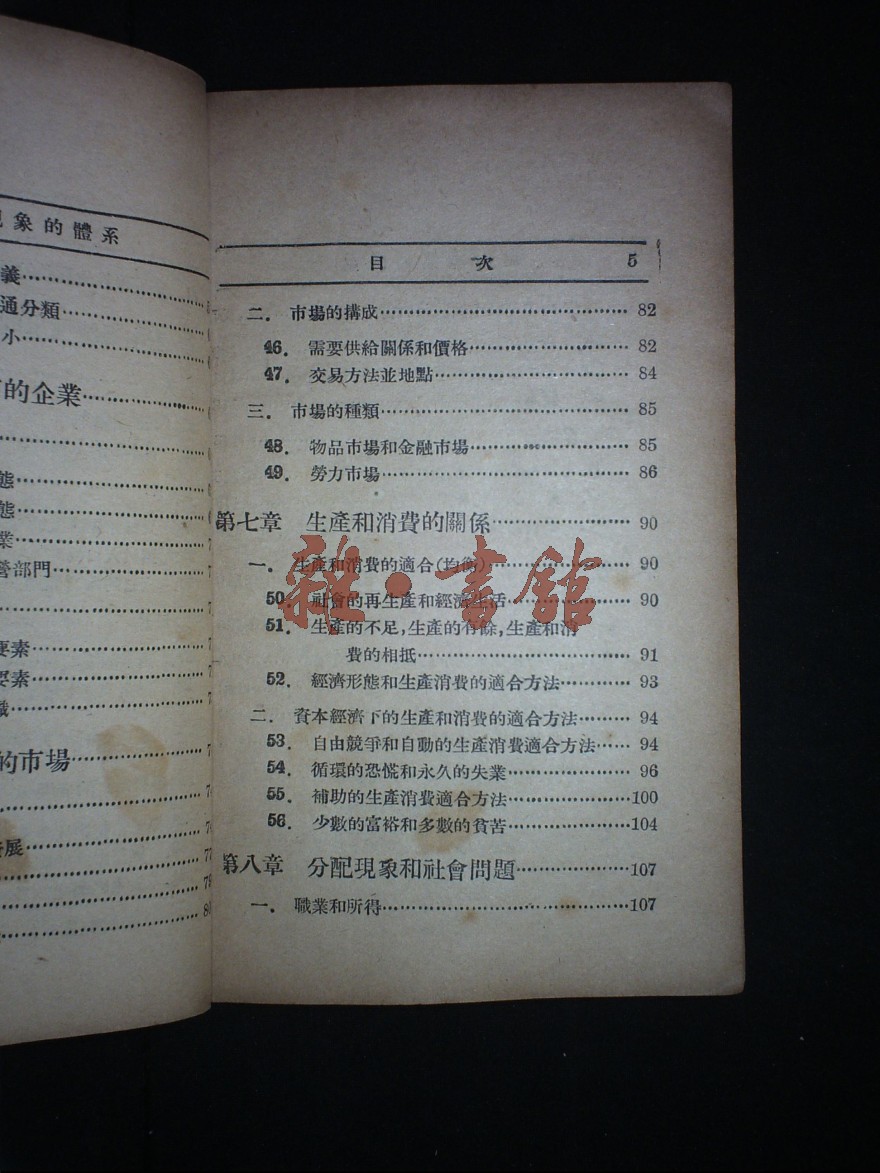 象的體系
義
通分類
小
的企業
態
態
業
營部門
要素
要素
的市場
展
目 次 5
二. 市場的搆成 82
46. 需要供給關係和價格 82
47. 交易方法並地點 84
三. 市場的種類 85
48. 物品市場和金融市場 85
49. 勞力市場 86
第七章 生產和消費的關係 90
一. 生產和消費的適合(均衡) 90
50. 社會的再生產和經濟生活 90
51. 生產的不足,生產的有餘,生產和消
費的相抵 91
52. 經濟形態和生產消費的適合方法 93
二. 資本經濟下的生產和消費的適合方法 94
53. 自由競爭和自動的生產消費適合方法 94
54. 循環的恐慌和永久的失業 96
55. 補助的生產消費適合方法 100
56. 少數的富裕和多數的貧苦 104
第八章 分配現象和社會問題 107
一. 職業和所得 107
雜·書館